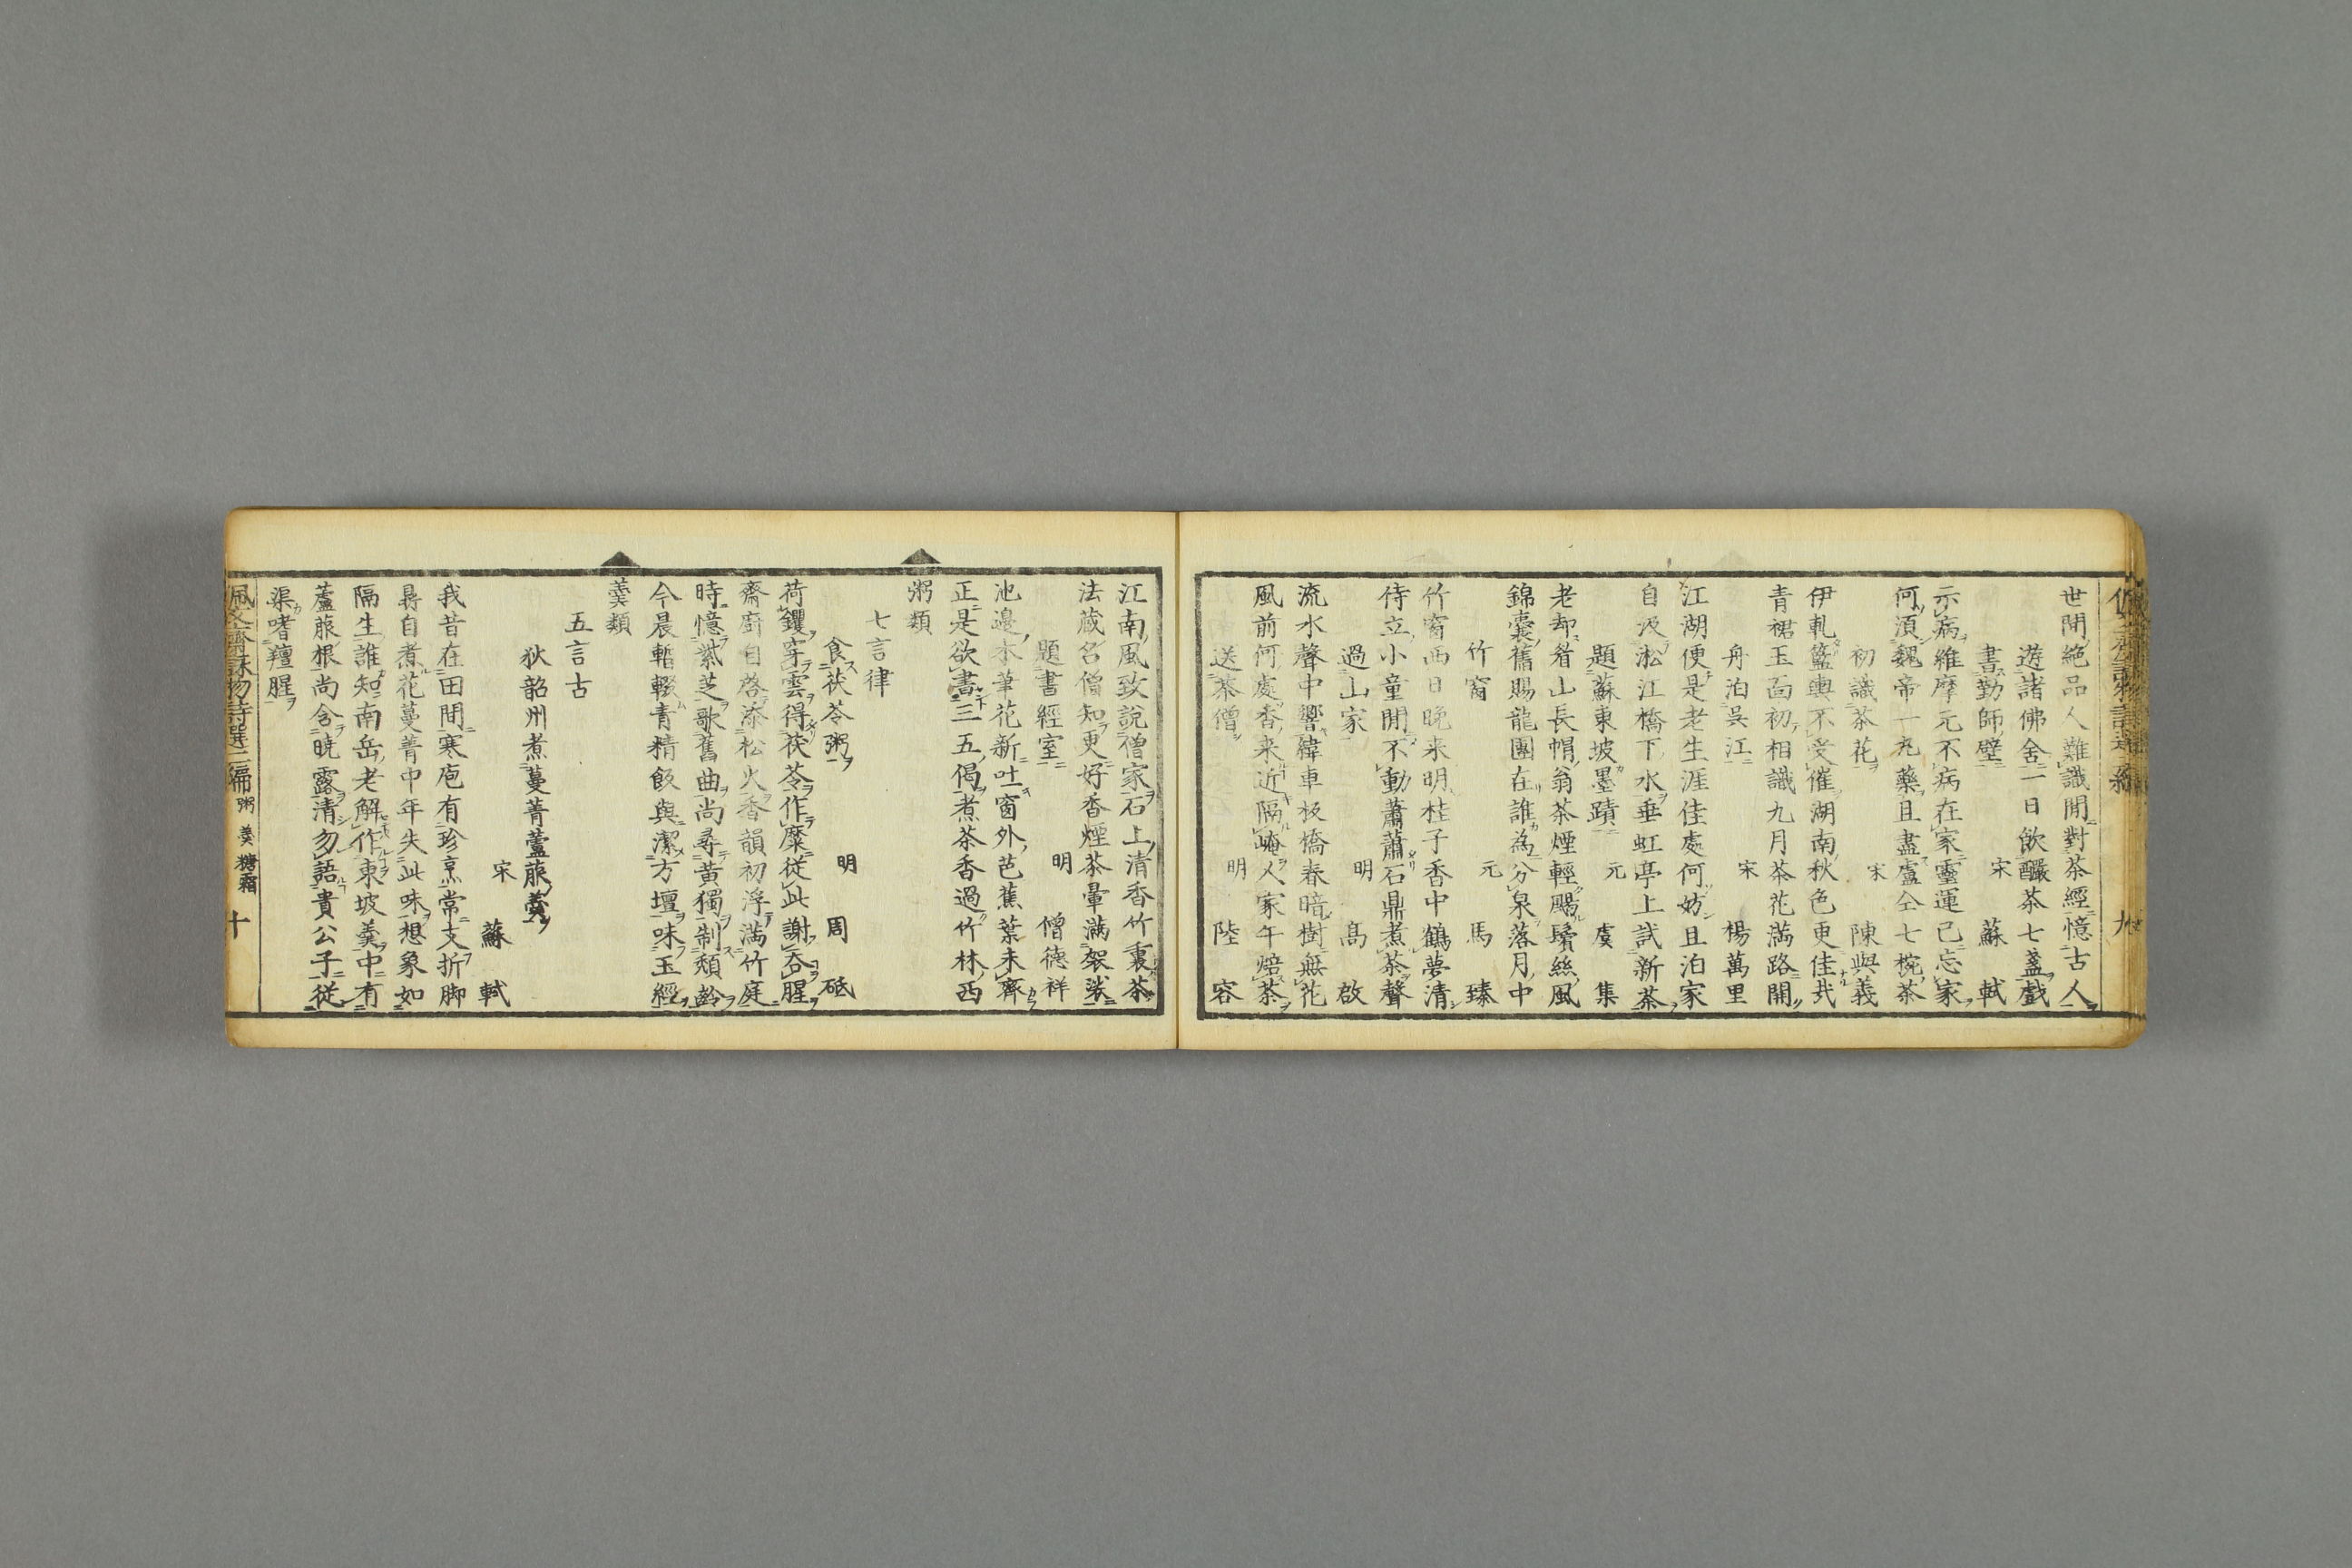 世間絶品人難識閒對茶經憶古人
遊諸佛舍一日飲釅茶七盞戲
書勤師壁 宋 蘇軾
示病維摩元不病在家靈運已忘家
何須魏帝一丸藥且盡盧仝七椀茶
初識茶花 宋 陳與義
伊軋籃輿不受催湖南秋色更佳哉
青裙玉面初相識九月茶花滿路開
舟泊吳江 宋 楊萬里
江湖便是老生涯佳處何妨且泊家
自汲淞江橋下水垂虹亭上試新茶
題蘇東坡墨蹟 元 虞集
老却眉山長帽翁茶煙輕颺鬢絲風
錦囊舊賜龍團在誰為分泉落月中
竹窗 元 馬臻
竹窗西日晚来明桂子香中鶴夢清
侍立小童閒不動蕭蕭石鼎煮茶聲
過山家 明 高啟
流水聲中響緯車板橋春暗樹無花
風前何處香来近隔崦人家午焙茶
送茶僧 明 陸容
江南風致說僧家石上清香竹裏茶
法藏名僧知更好香煙茶暈滿袈裟
題書經室 明 僧德祥
池邊木筆花新吐窗外芭蕉葉未齊
正是欲書三五偈煮茶香過竹林西
粥類
七言律
食茯苓粥 明 周砥
荷钁穿雲得茯苓作糜從此謝吞腥
齋廚自啓添松火香韻初浮滿竹庭
時憶紫芝歌舊曲尚尋黃獨制頹齡
今晨暫輟青精飯與潔方壇味玉經
羹類
五言古
狄韶州煮蔓菁蘆菔羹
宋 蘇軾
我昔在田間寒庖有珍烹常支折脚
鼎自煮花蔓菁中年失此味想象如
隔生誰知南岳老解作東坡羹中有
蘆菔根尚含曉露清勿語貴公子從
渠嗜羶腥
佩文齋詠物詩選二編 粥 羹 糖霜 十